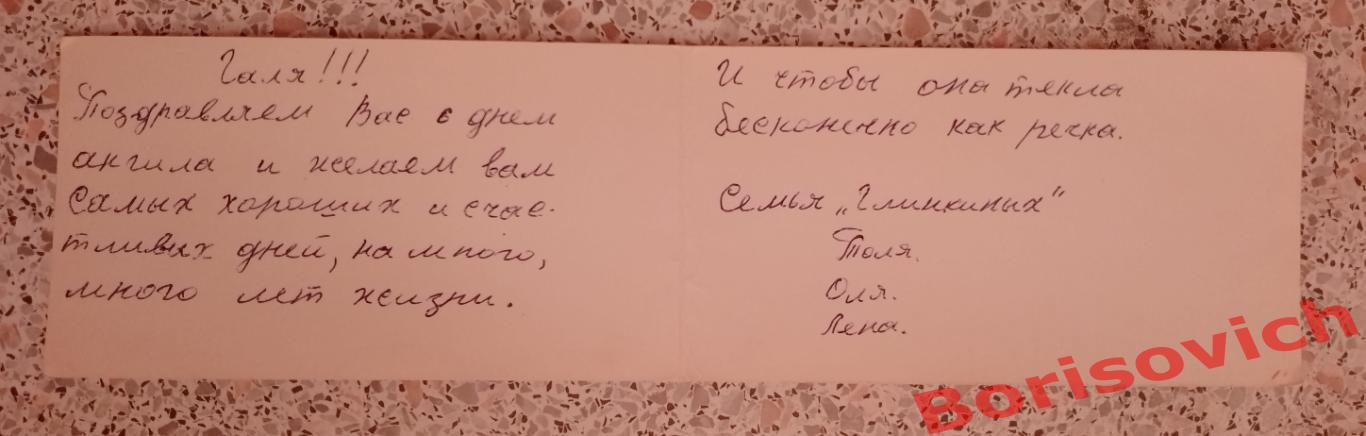 Галя!!!
Поздравляем Вас с днем
ангила и желаем вам
самых хороших и счас-
тливых дней, на много,
много лет жизни.
И чтобы она текла
бесконечно как речка.
Семья „Глинкиных"
Толя.
Оля.
Лена.
Borisovich